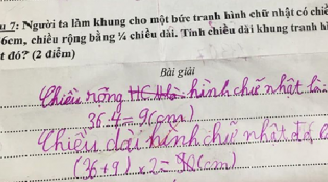 u 7: Người ta làm khung cho một bức tranh hình chữ nhật có chiề
6cm, chiều rộng bằng ¼ chiều dài. Tính chiều dài khung tranh h
t đó? (2 điểm)
Bài giải
Chiều rộng hình chữ nhật là:
36:4=9(cm)
Chiều dài hình chữ nhật đó
(36+9)×2=90(cm)